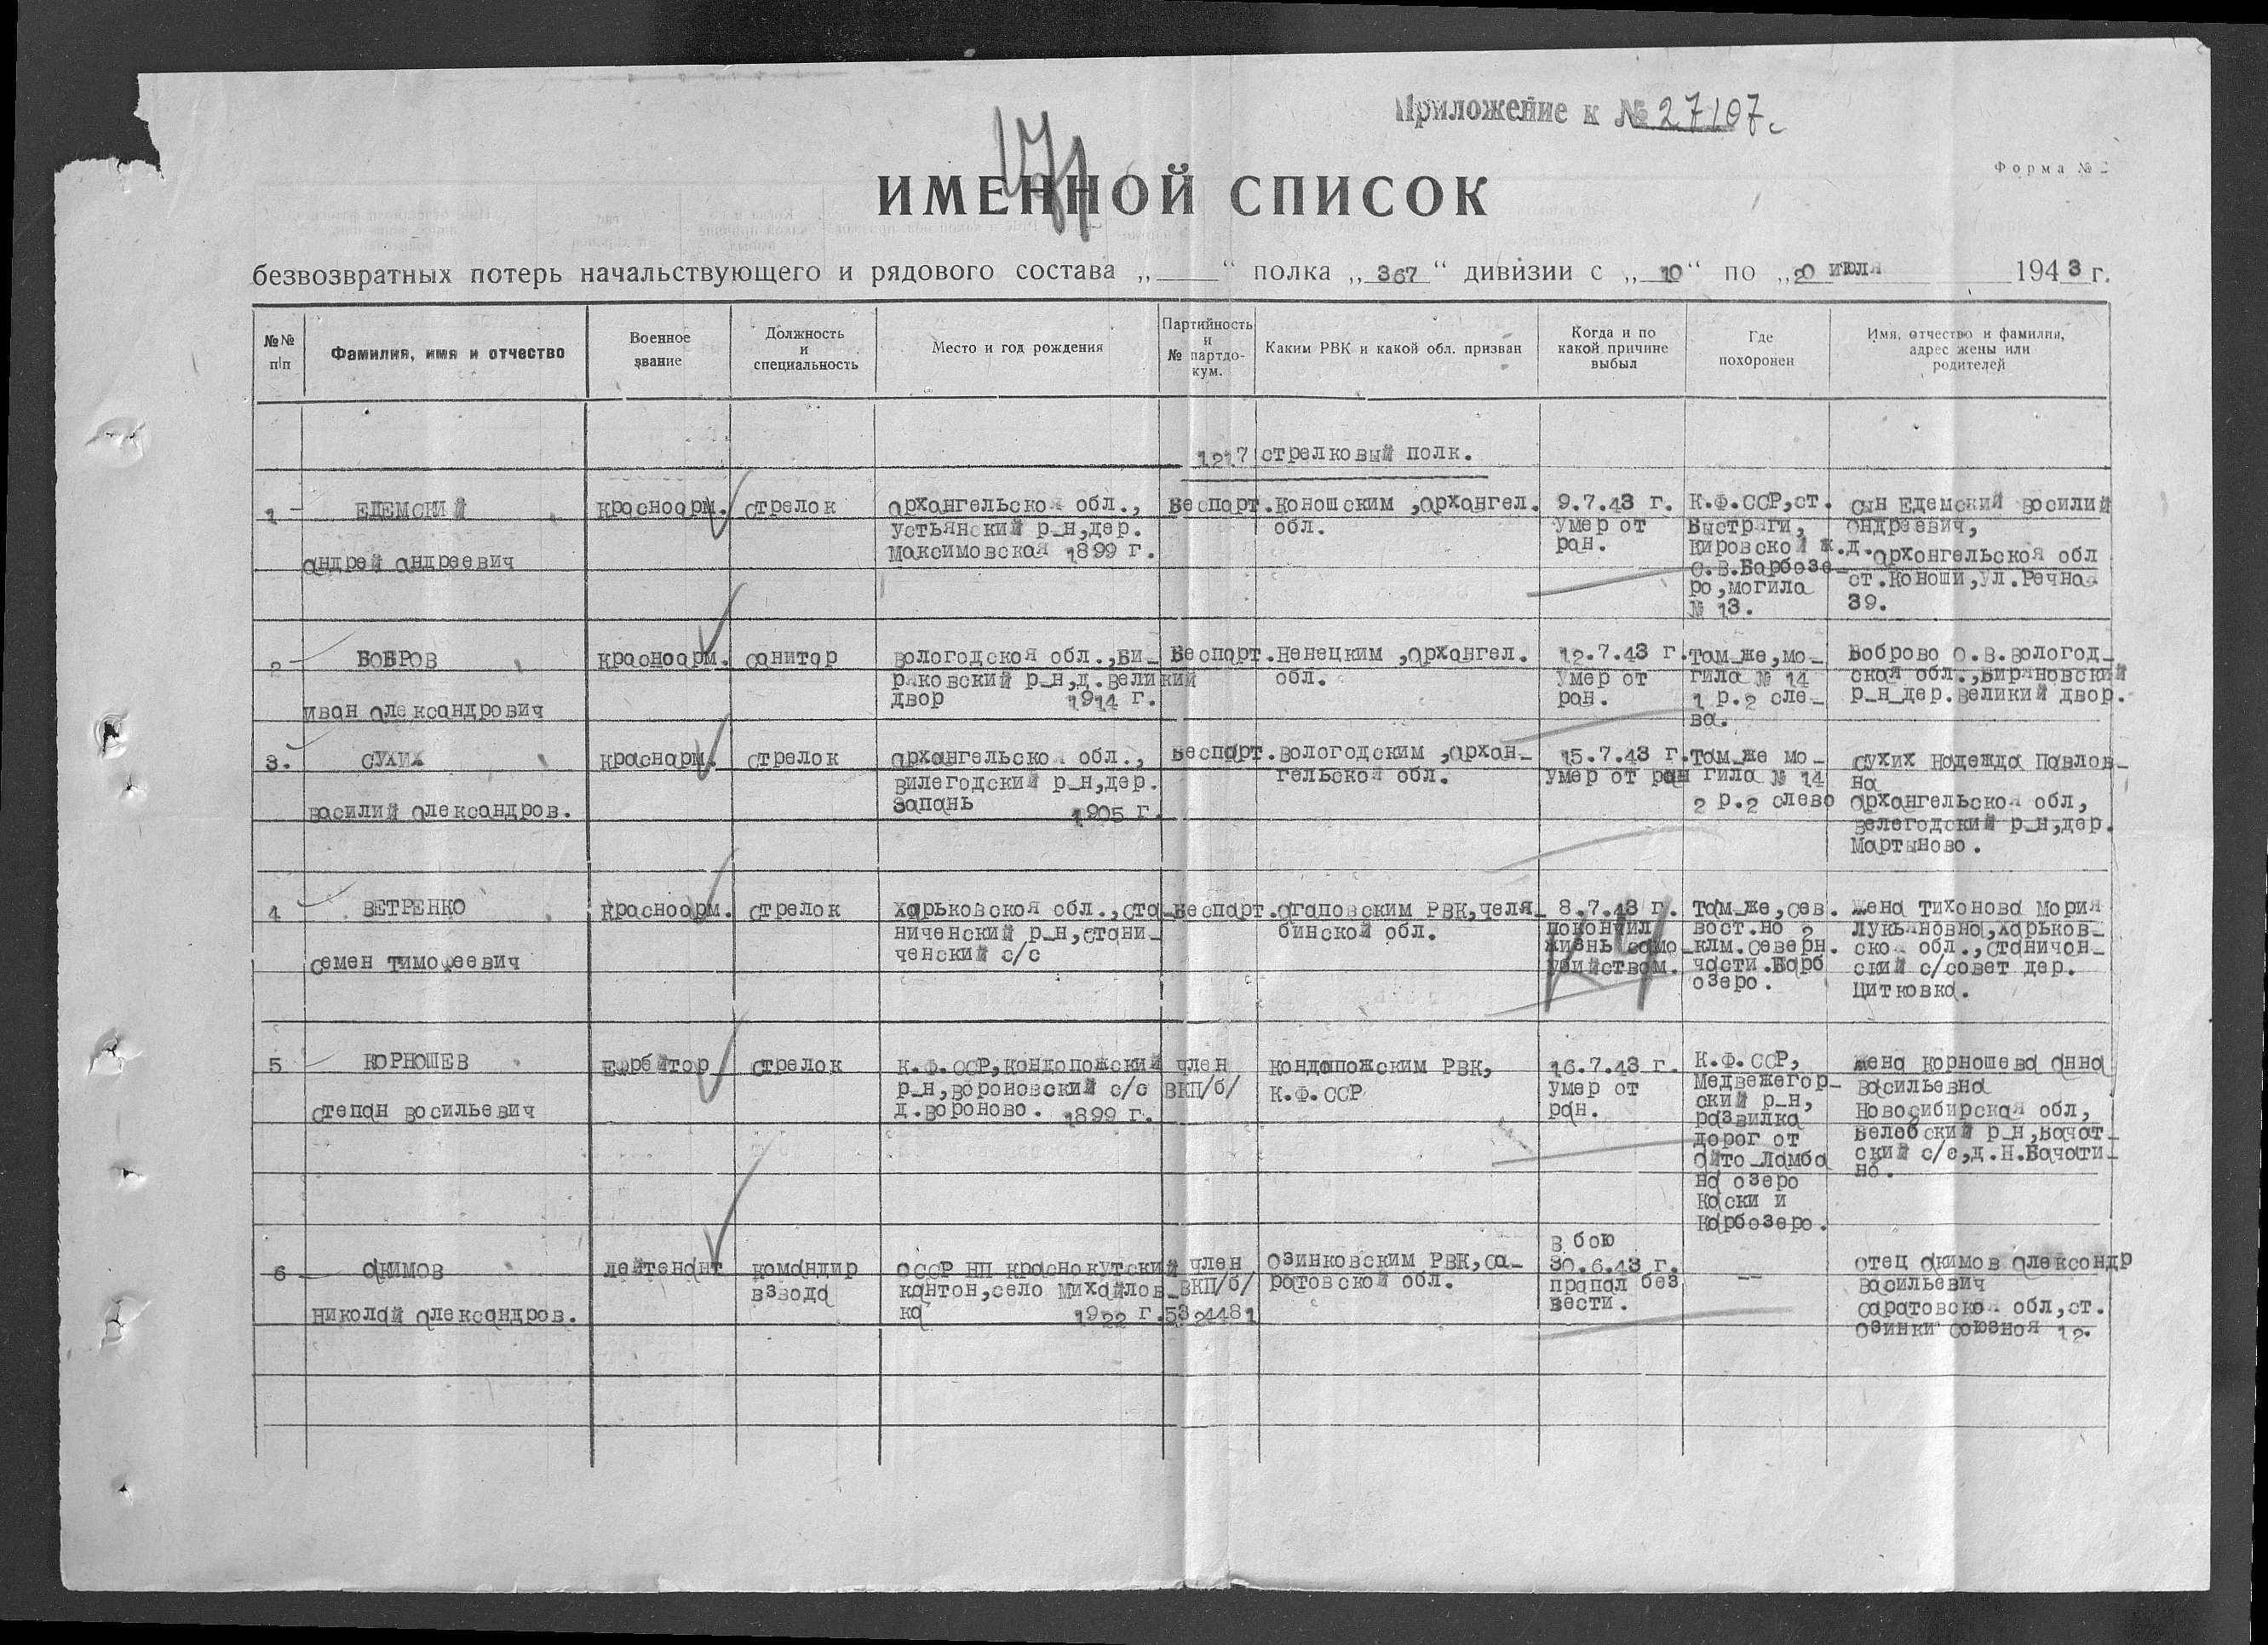 Приложение к № 27107с
Форма №
ИМЕННОЙ СПИСОК
безвозвратных потерь начальствующего и рядового состава „ “ полка „367“ дивизии с „10“ по „20 июля 1943 г.
№№ п/п
Фамилия, имя и отчество
Военное звание
Должность и специальность
Место и год рождения
Партийность и № партдокум.
Каким РВК и какой обл. призван
Когда и по какой причине выбыл
Где похоронен
Имя, отчество и фамилия, адрес жены или родителей
1217 стрелковый полк.
1
ЕДЕМСКИЙ
андрей андреевич
красноарм.
стрелок
архангельская обл.,
устьянский р-н,дер.
максимовская 1899 г.
Беспарт.
коношским ,архангел.
обл.
9.7.43 г.
умер от
ран.
К.Ф.ССР,ст.
Быстряги,
Кировской ж.д.
с.в.Барбозе-
ро,могила
№ 13.
сын Едемский василий
андреевич,
архангельская обл
ст.Коноши,ул.Речная
39.
2
БОБРОВ
иван александрович
красноарм.
санитар
вологодская обл.,Би-
ряковский р-н,д.великий
двор 1914 г.
Беспарт.
Ненецким ,архангел.
обл.
12.7.43 г.
умер от
ран.
Там-же,мо-
гила № 14
1 р.2 сле-
ва.
Боброво О.В.вологод-
ская обл.,Биряновский
р-н-дер.великий двор.
3.
СУХИХ
василий александров.
краснарм.
стрелок
архангельская обл.,
вилегодский р-н,дер.
запань 1905 г.
Беспарт.
вологодским ,архан-
гельской обл.
15.7.43 г.
умер от ран
Там-же мо-
гила № 14
2 р.2 слево
сухих надежда Павлов-
на
архангельская обл,
велегодский р-н,дер.
Мартыново.
4
ВЕТРЕНКО
семен тимофеевич
красноарм.
стрелок
харьковская обл.,ста-
ниченский р-н,стани-
ченский с/с
Беспарт.
агаповским РВК,челя-
бинской обл.
8.7.43 г.
покончил
жизнь само-
убийством.
Там-же,сев.
вост.но 2
клм.северн.
части.Барб
озеро.
жена Тихонова мария
лукьяновна,харьков-
ская обл.,станичон-
ский с/совет дер.
Цитковка.
5
КОРНОШЕВ
степан васильевич
Ефрейтор
стрелок
К.Ф.ССР,кондопожский
р-н,вороновский с/с
д.вороново. 1899 г.
член
ВКП/б/
кондопожским РВК,
К.Ф.ССР
16.7.43 г.
умер от
ран.
К.Ф.ССР,
Медвежегор-
ский р-н,
развилка
дорог от
ойто-Ламба
на озеро
Каски и
Карбозеро.
жена корношева анна
васильевна
Новосибирская обл,
Белебский р-н,Бачат-
ский с/с,д.Н.Бачати-
но.
6
акимов
николай александров.
лейтенант
командир
взвода
ОССР НП краснокутский
кантон,село Михайлов-
ка 1922 г.
член
ВКП/б/
5324481
озинковским РВК,са-
ратовской обл.
в бою
30.6.43 г.
пропал без
вести.
--
отец акимов александр
васильевич
саратовская обл,ст.
озинки союзная 12.